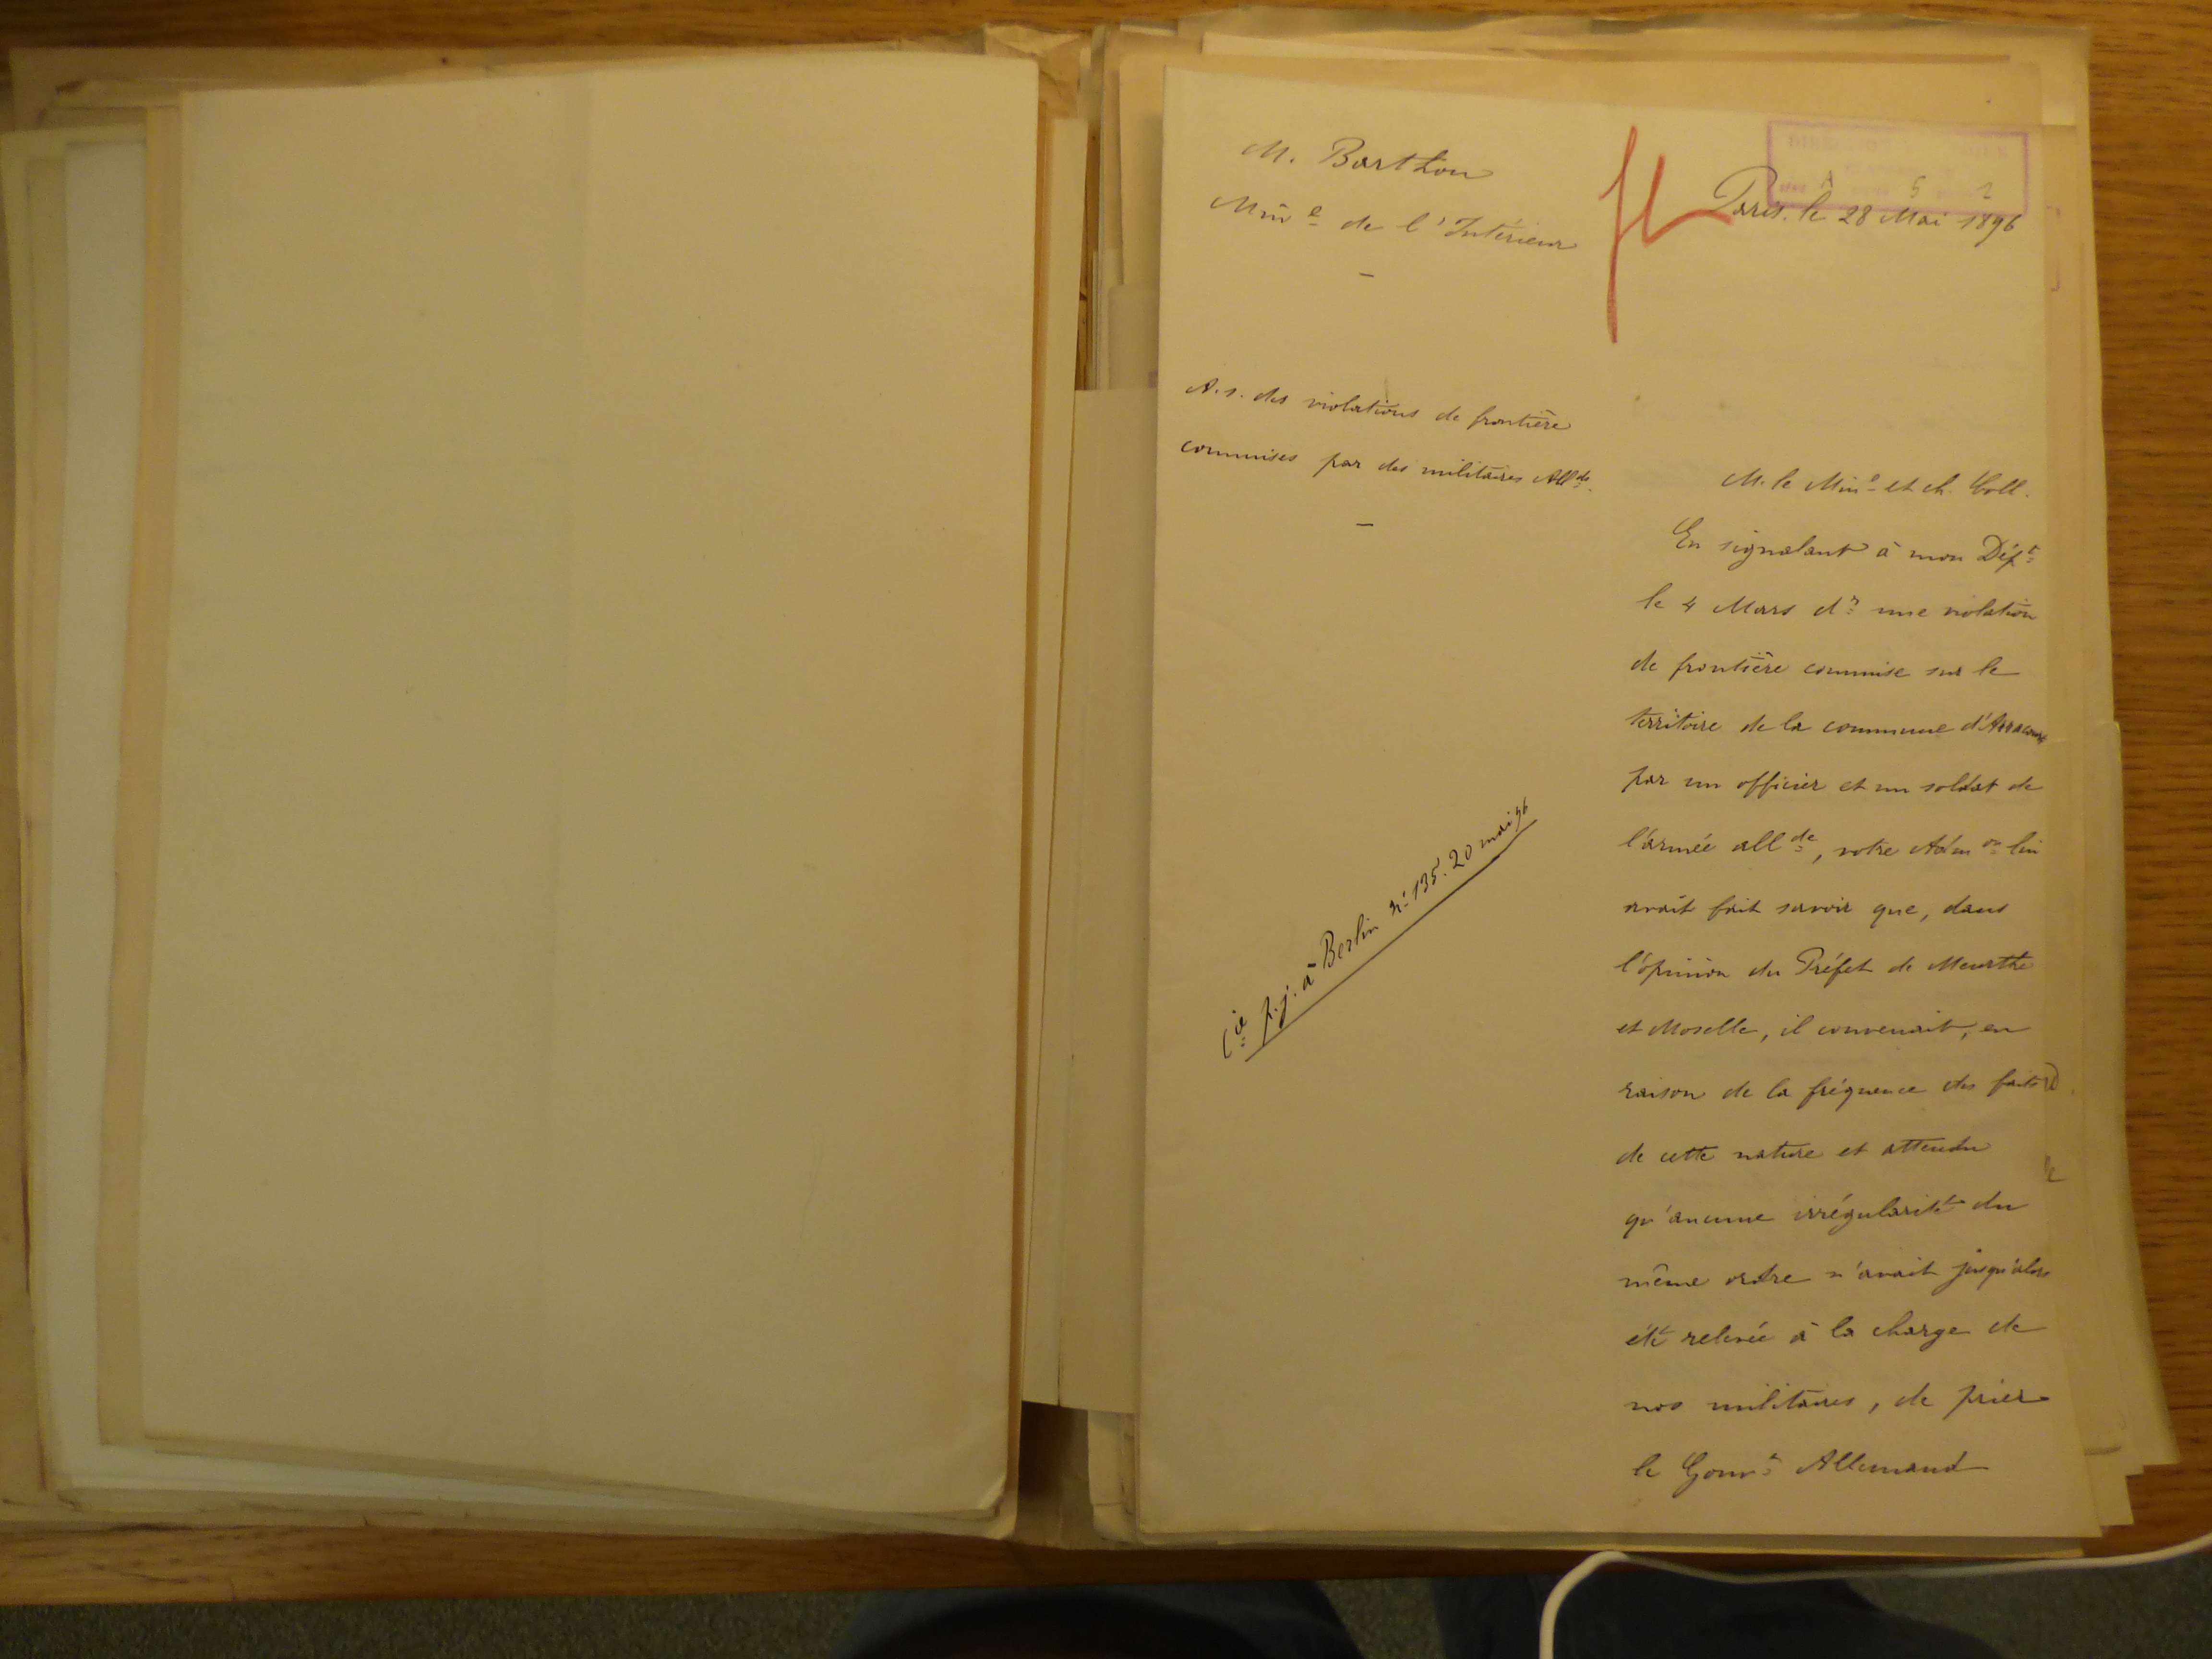 M. Barthou
Min^e de l'Intérieur
Paris, le 28 Mai 1896
A.s. des violations de frontière
commises par des militaires All^ds.
M. le Min^e et ch. Coll.
En signalant à mon Dép^t
le 4 Mars d^r une violation
de frontière commise sur le
territoire de la commune d'Arracourt
par un officier et un soldat de
l'armée all^de, votre Adm^on lui
avait fait savoir que, dans
l'opinion du Préfet de Meurthe
et Moselle, il convenait, en
raison de la fréquence des faits
de cette nature et attendu
qu'aucune irrégularité du
même ordre n'avait jusqu'alors
été relevée à la charge de
nos militaires, de prier
le Gouv^t Allemand
C^ie p.j. à Berlin n° 135. 20 mai 96